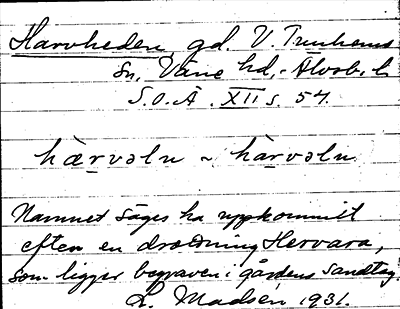 Harvheden, gd. V. Tunhems
sn, Väne hd, Älvsb. l.
S.O.Ä. XII s. 54.
hæ̀rvəln ~ hàrvəln
Namnet säges ha uppkommit
efter en drottning Hervara,
som ligger begraven i gårdens sandtag.
L. Madsén 1931.